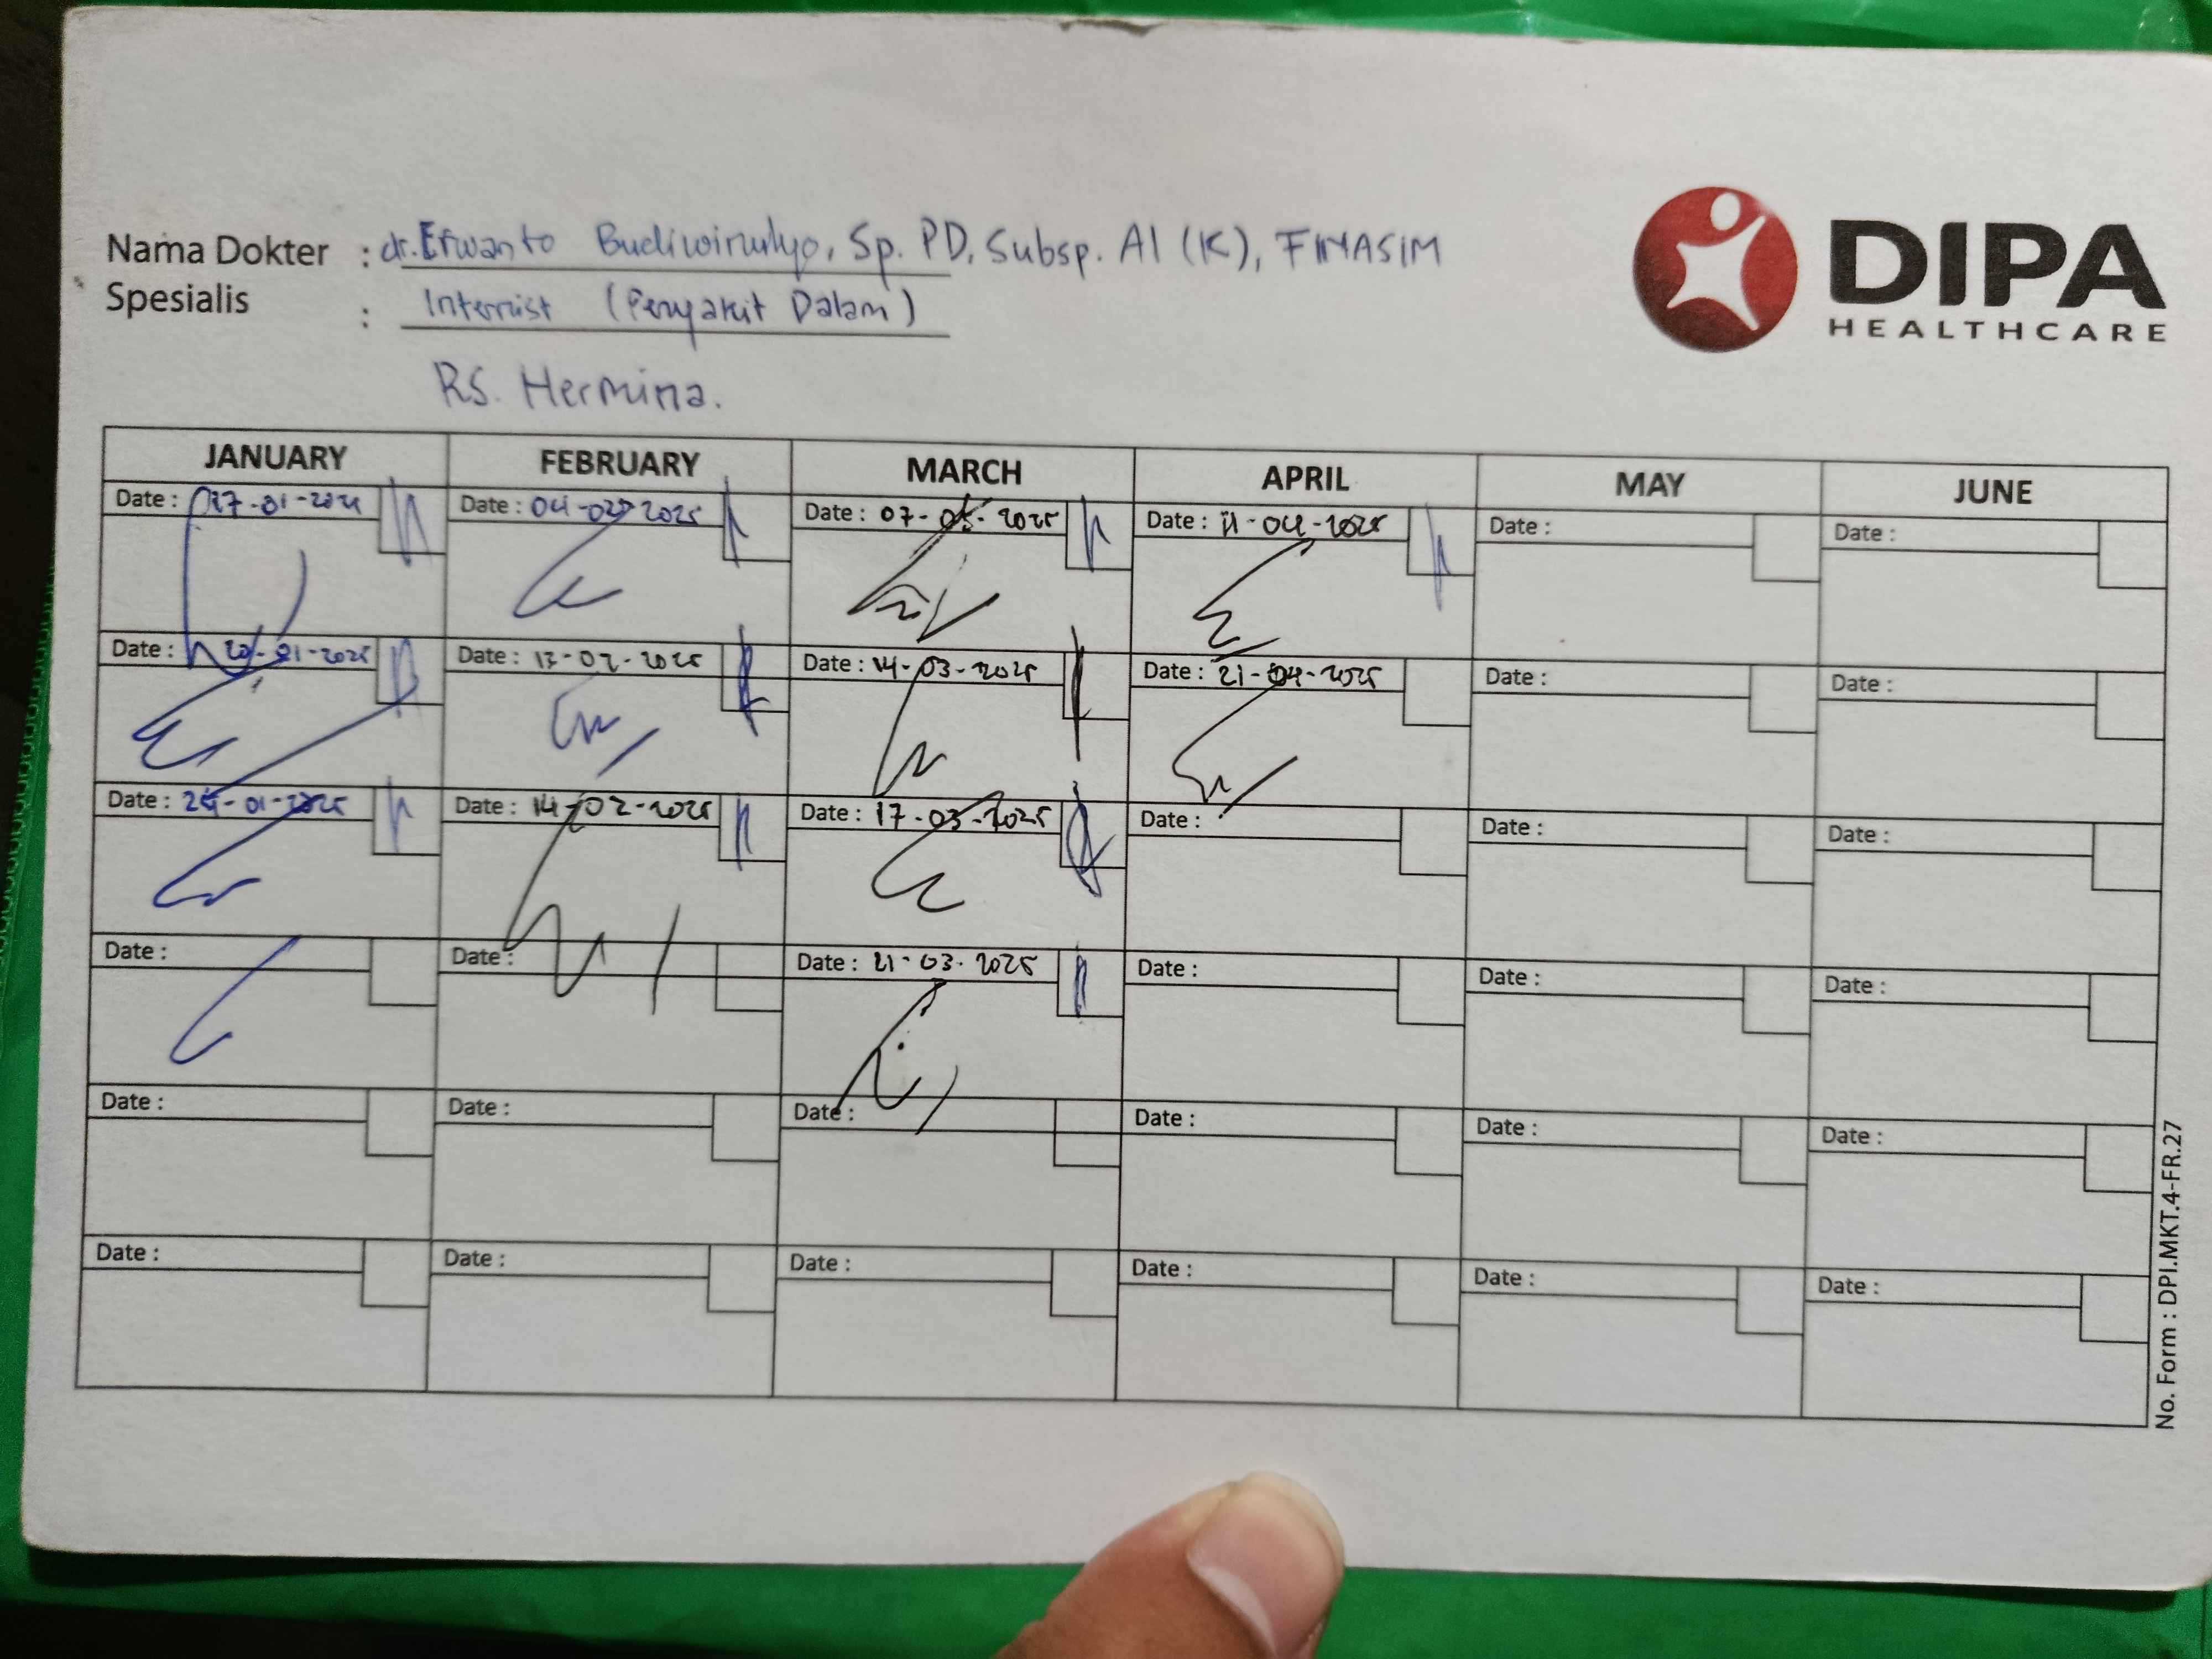 Nama Dokter : dr. Erwanto Budiwinulyo, Sp. PD, Subsp. AI (K), FINASIM
Spesialis : Internist (Penyakit Dalam)
RS. Hermina.
DIPA
HEALTHCARE
JANUARY FEBRUARY MARCH APRIL MAY JUNE
Date : Date : 04-02-2025 Date : 07-03-2025 Date : 11-04-2025 Date : Date :
Date : 20-01-2025 Date : 13-02-2025 Date : 14-03-2025 Date : 21-04-2025 Date : Date :
Date : 24-01-2025 Date : 14-02-2025 Date : 17-03-2025 Date : Date : Date :
Date : Date : Date : 21-03-2025 Date : Date : Date :
Date : Date : Date : Date : Date : Date :
Date : Date : Date : Date : Date : Date :
No. Form : DPI.MKT.4-FR.27